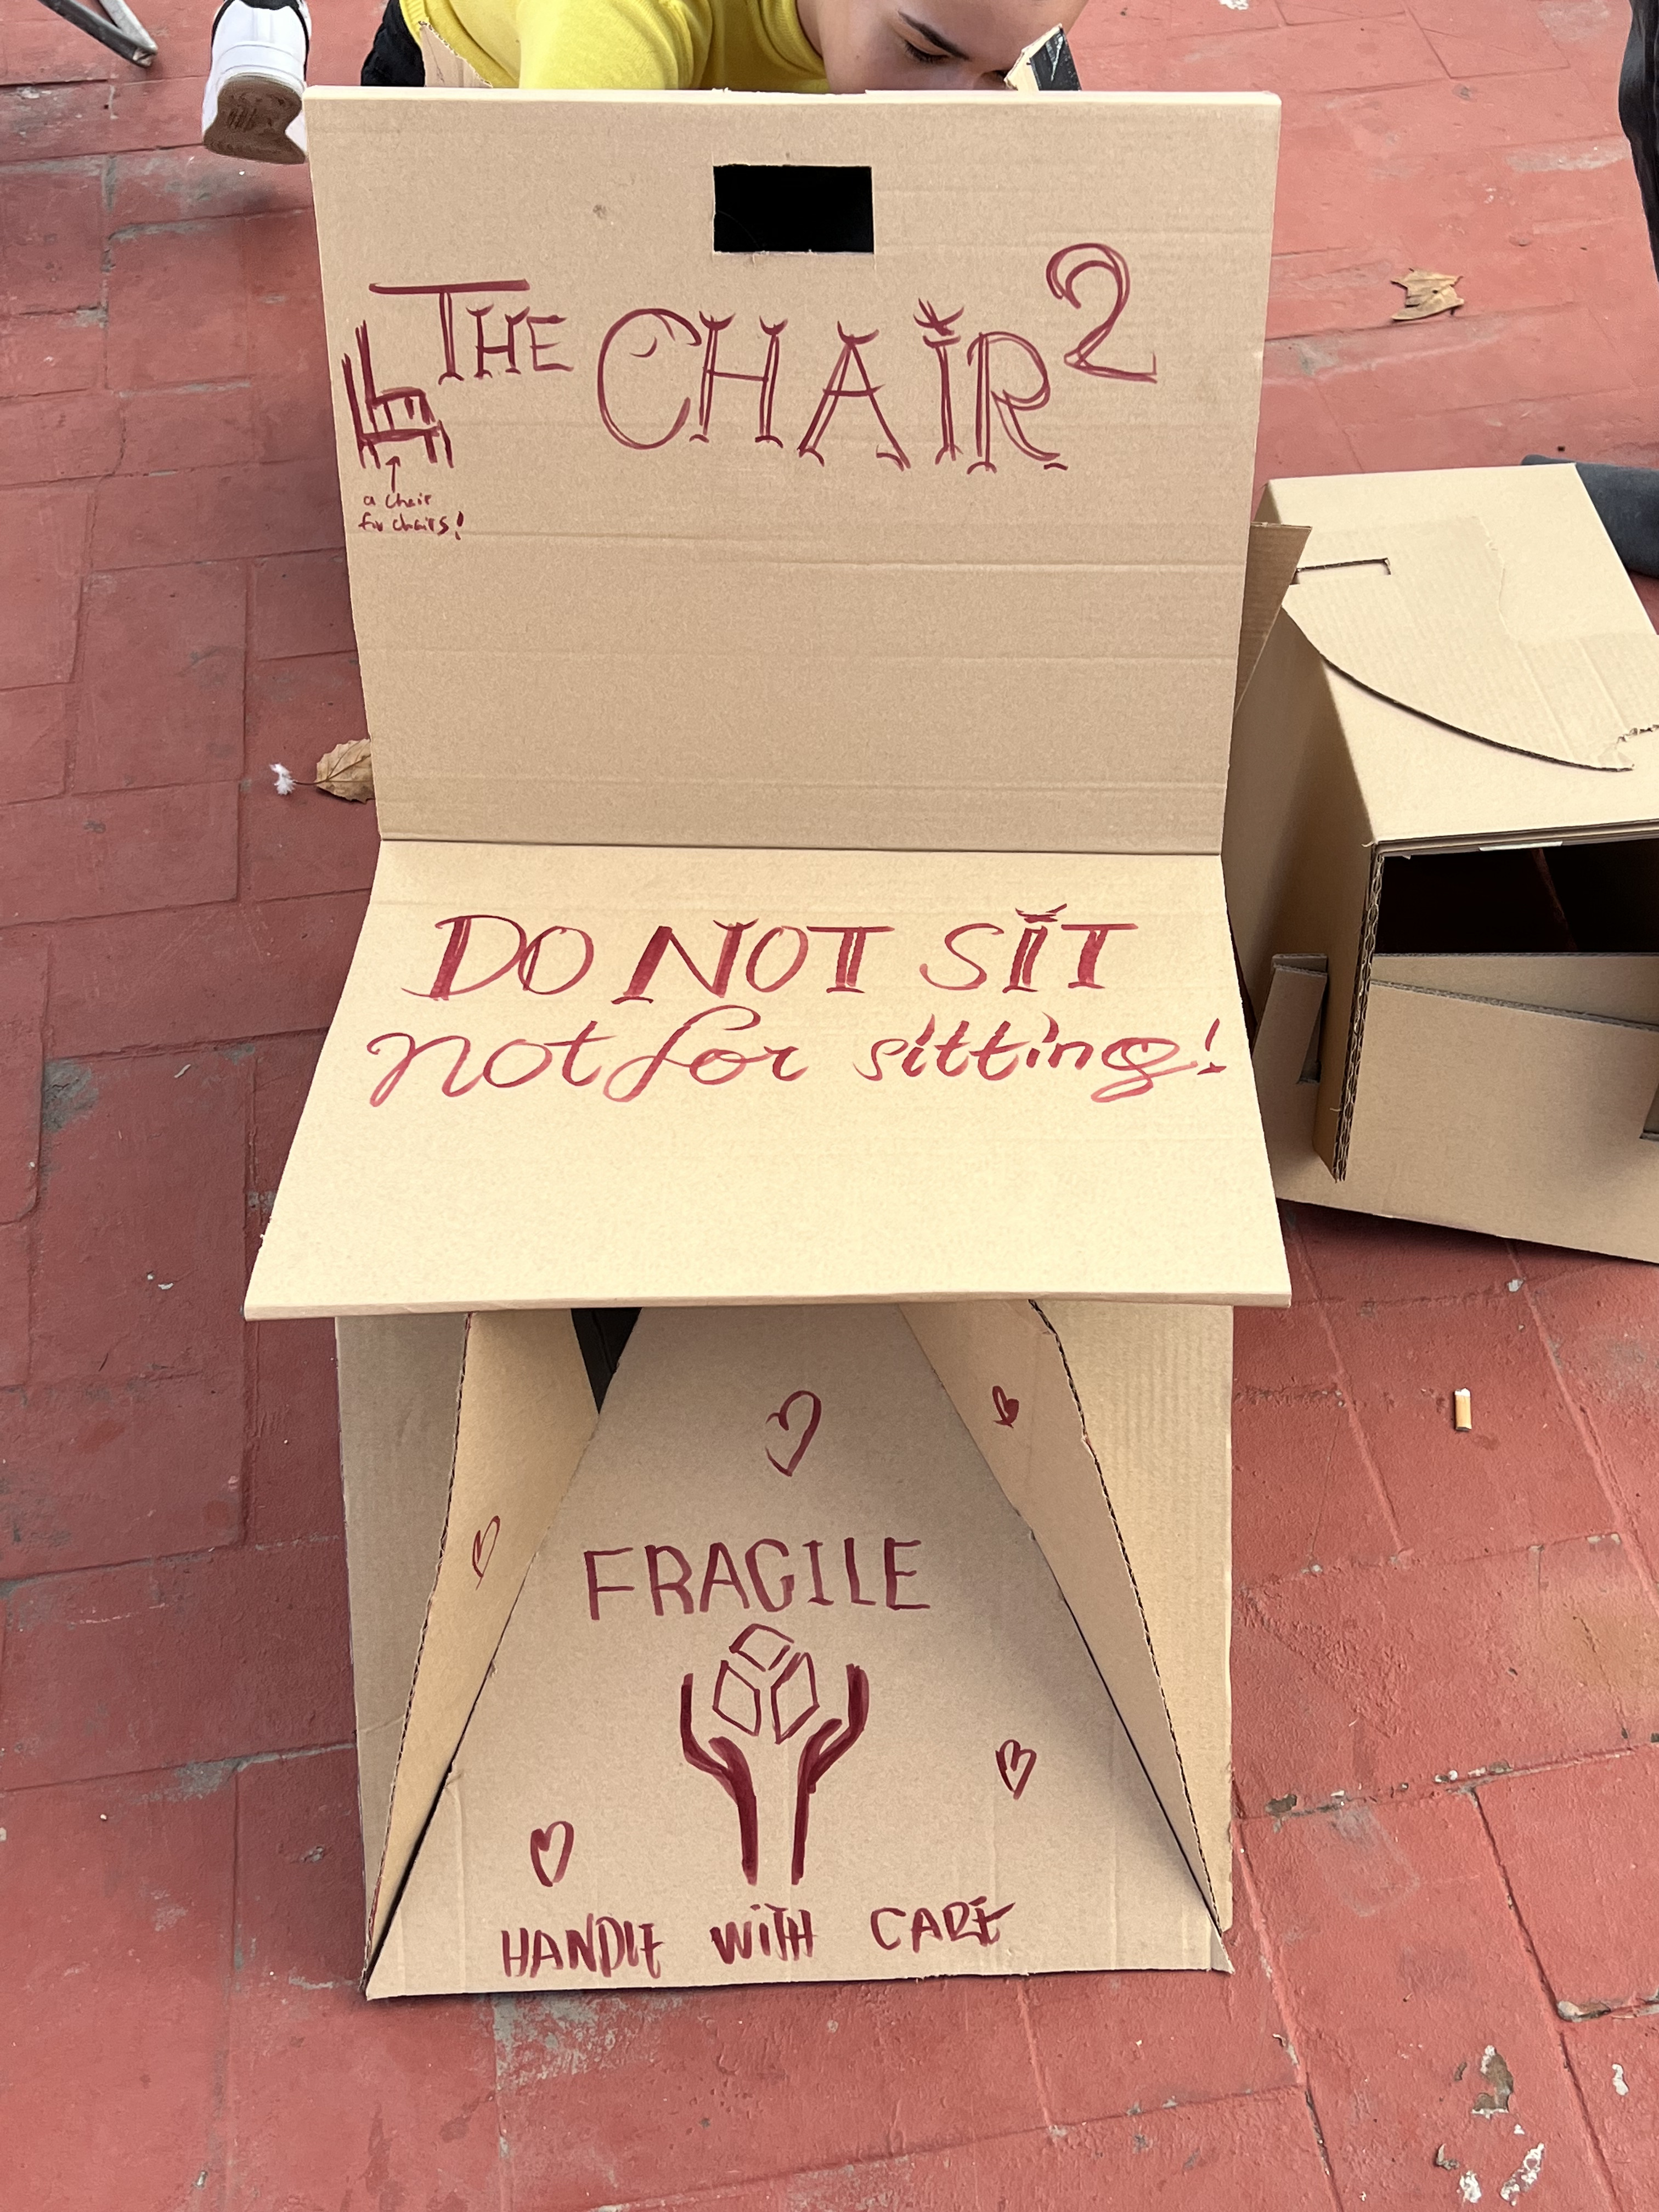 THE CHAIR²
a chair
for chairs!
DO NOT SIT
not for sitting!
FRAGILE
HANDLE WITH CARE